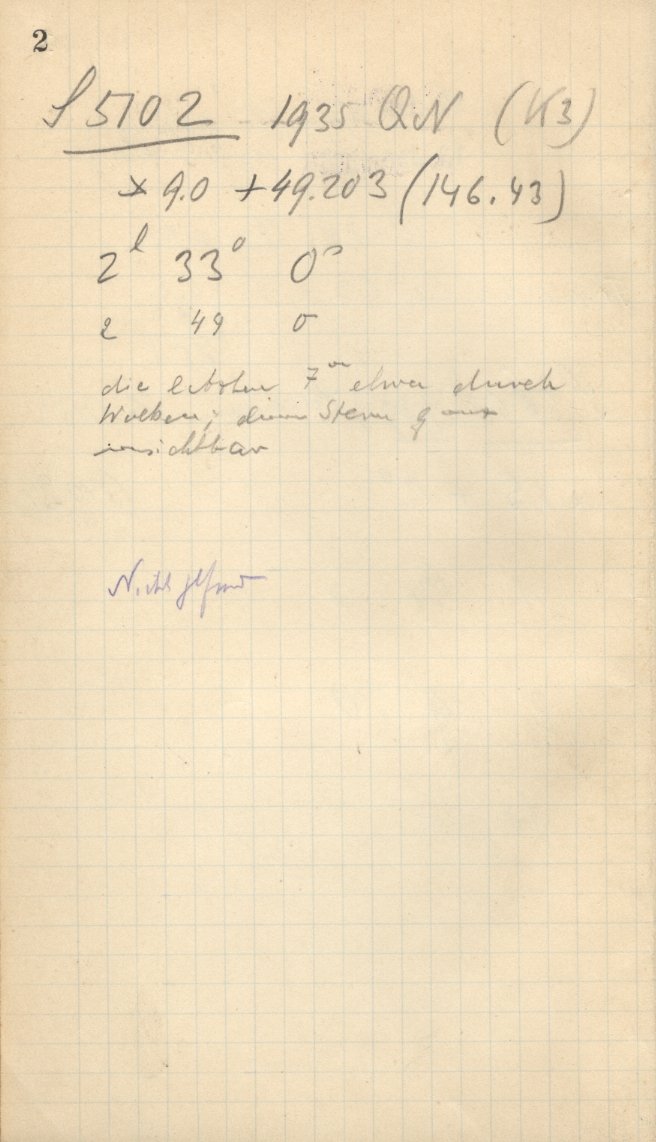 2
S 5102 1935 QN (K3)
* 9.0 +49.203 (146.43)
2 33 0
2 49 0
die letzten 7m etwa durch
Wolken; Stern ganz
unsichtbar
Nicht